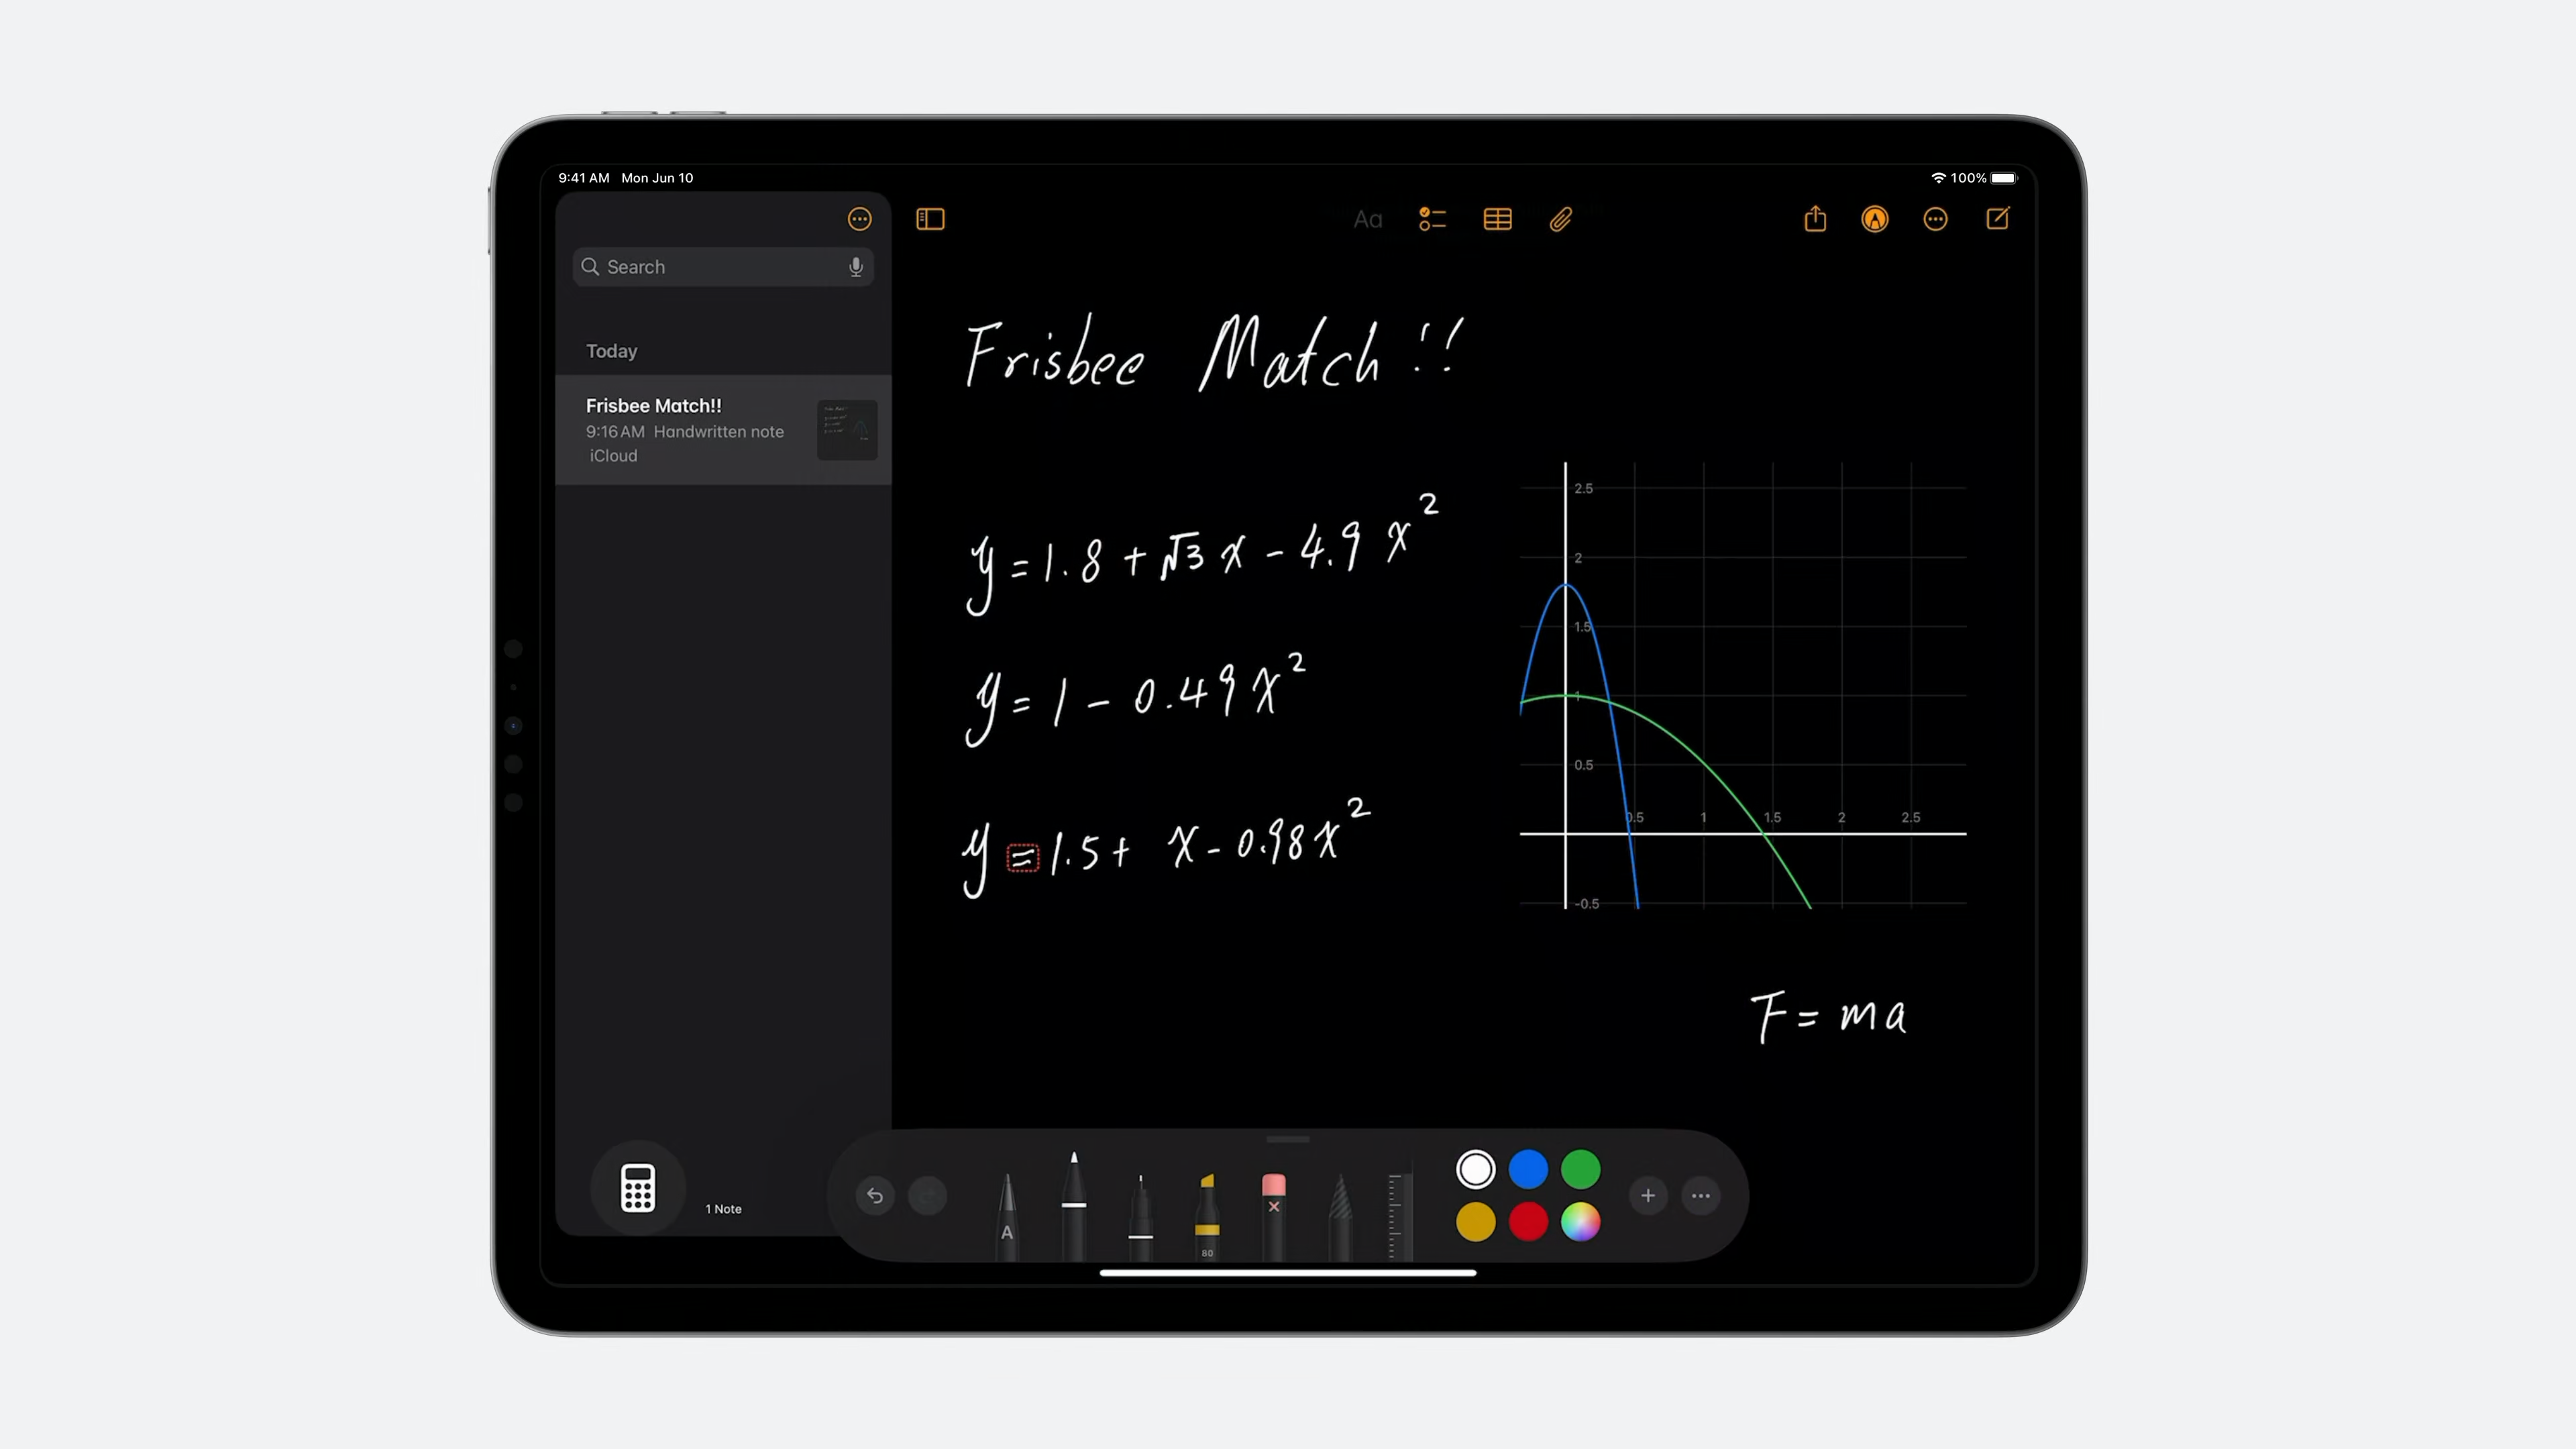 9:41 AM Mon Jun 10
100%
Aa
Search
Today
Frisbee Match!!
9:16 AM Handwritten note
iCloud
Frisbee Match !!
y = 1.8 + √3 x - 4.9 x²
y = 1 - 0.49 x²
y = 1.5 + x - 0.98 x²
2.5
2
1.5
1
0.5
0.5 1 1.5 2 2.5
-0.5
F = ma
1 Note
A
80